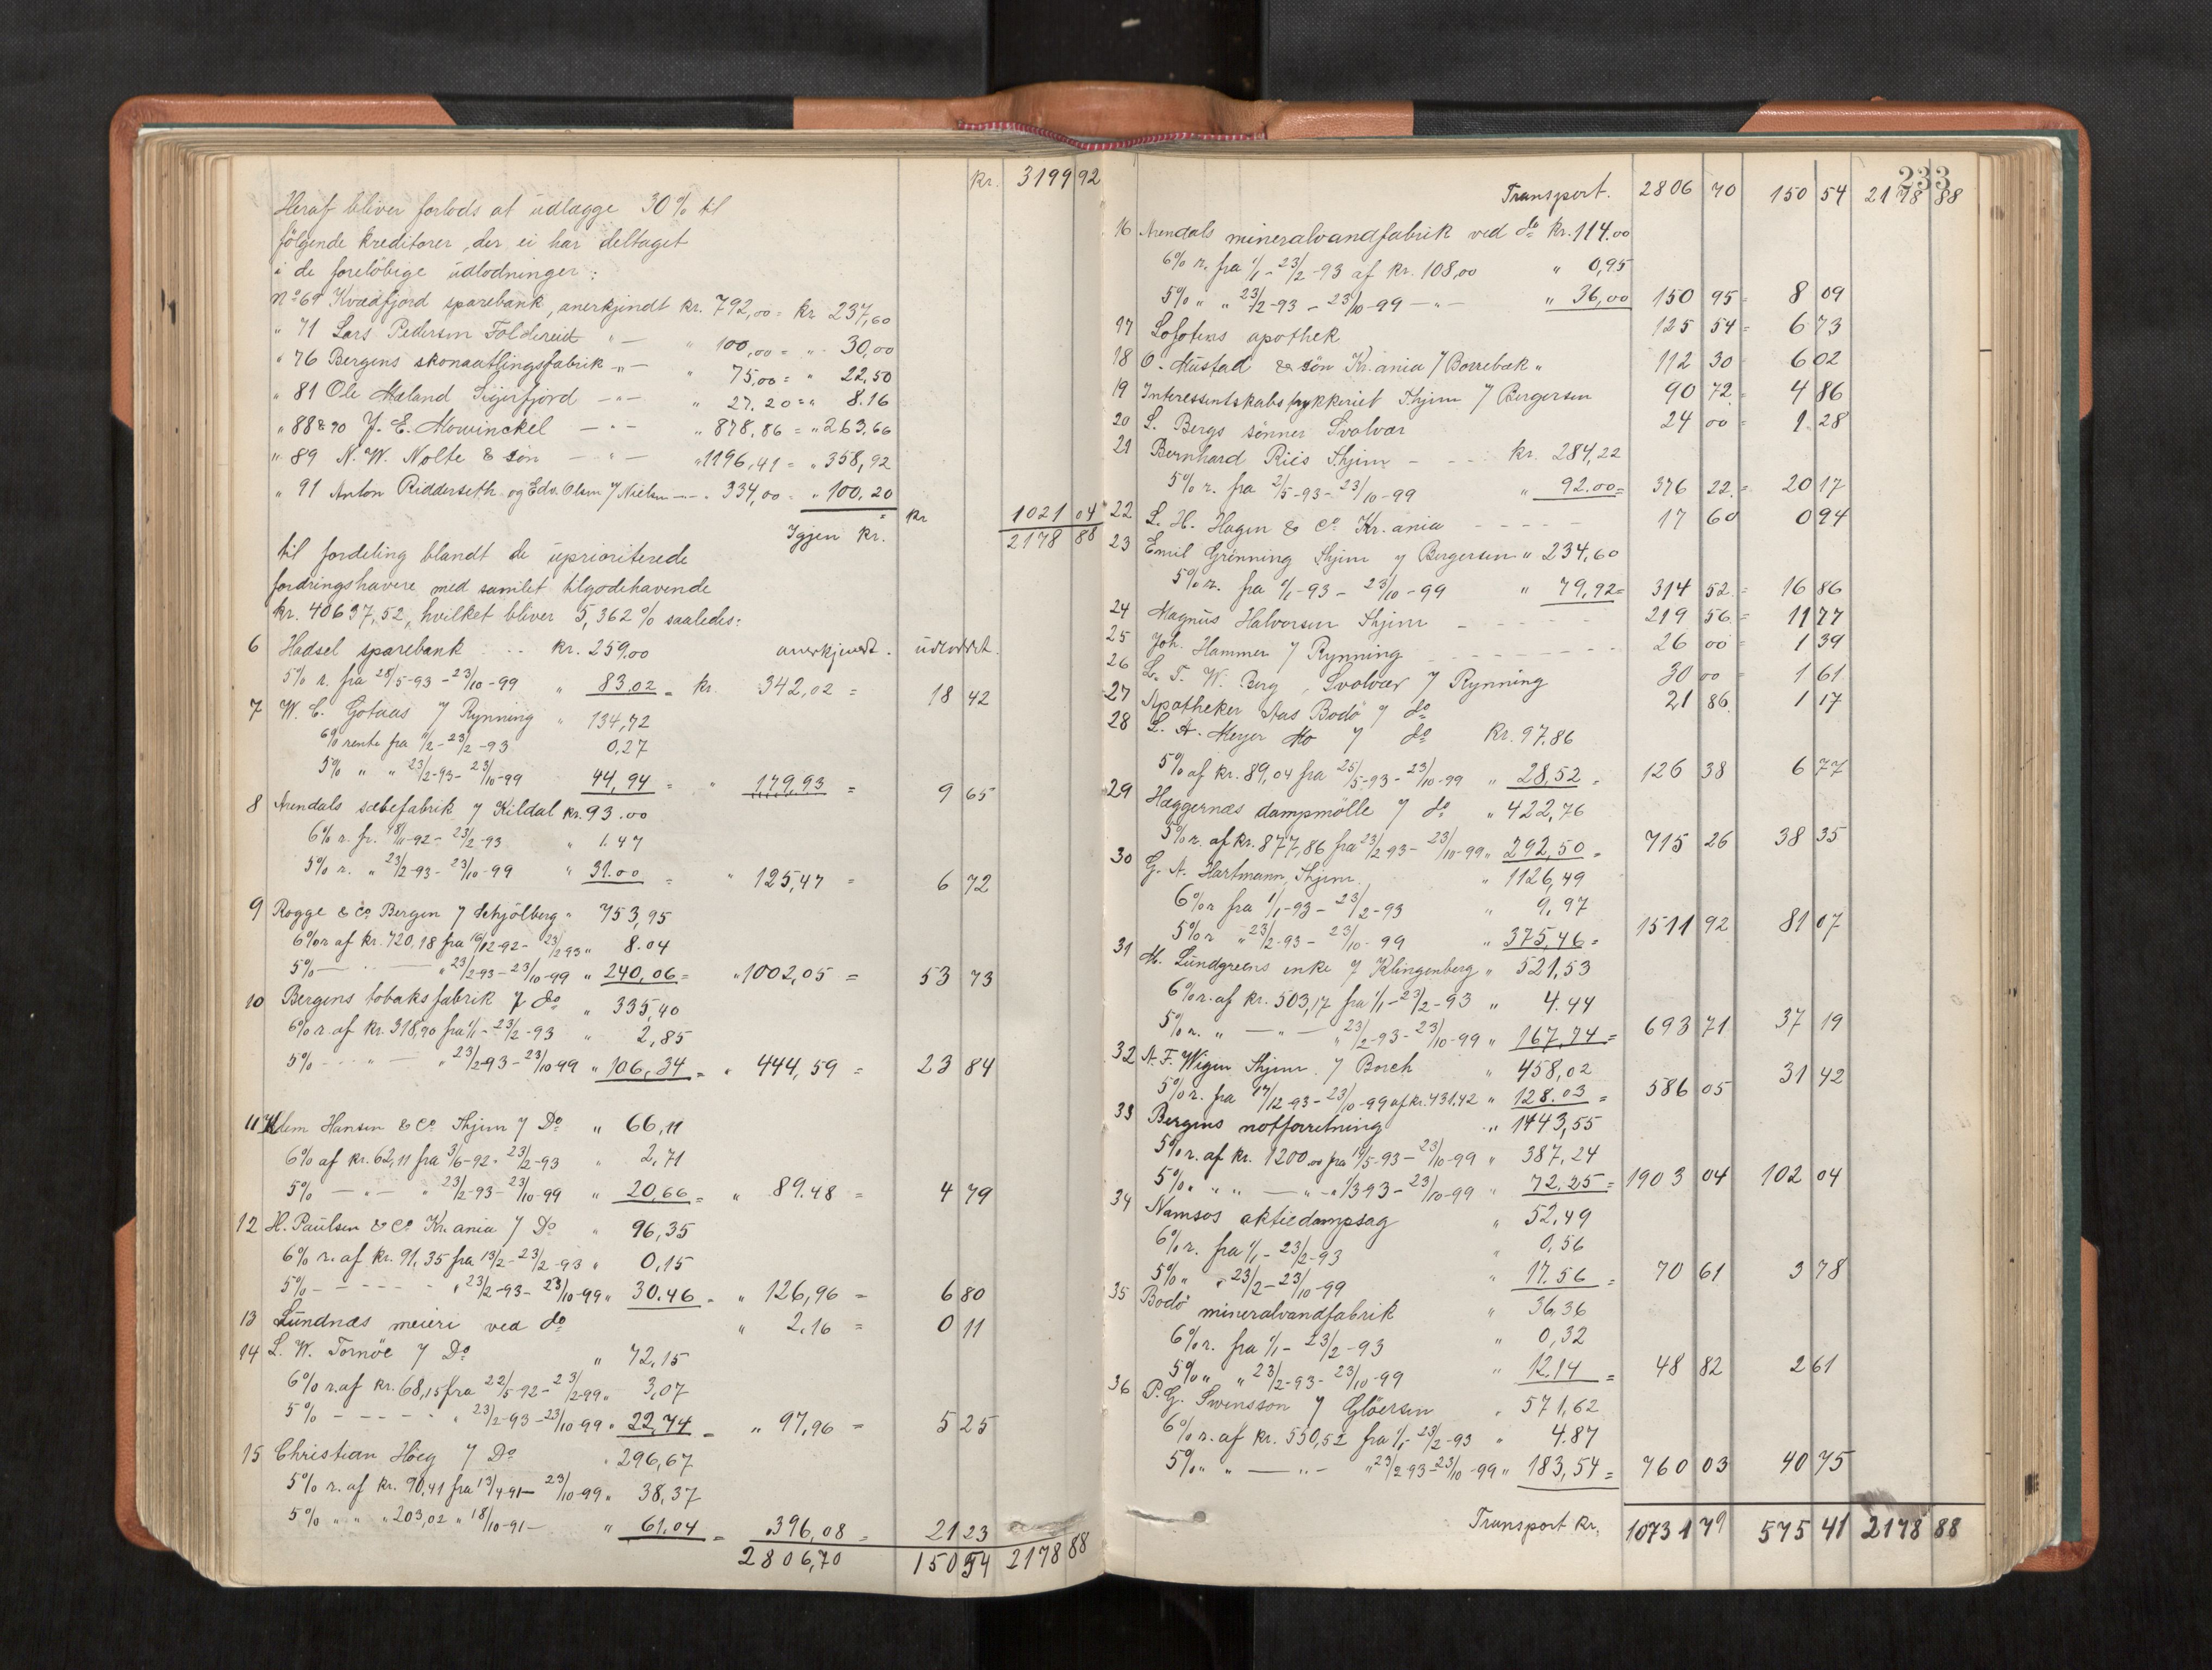 Kr. 3199 92
Heraf bliver forlods at udlægge 30% til
følgende kreditorer, der ei har deltaget
i de foreløbige udlodninger:
No 69 Kvædfjord sparebank, anerkjendt kr. 792,00 = kr 237,60
" 71 Lars Pedersen Foldereid " — " 100,00 = " 30,00
" 76 Bergens skomaatlingsfabrik " — " 75,00 = " 22,50
" 81 Ole Mæland Sigerfjord — " — " 27.20 = " 8.16
" 88 & 90 J. E. Mowinckel — " — " 878,86 = " 263,66
" 89 N. W. Nolte & søn — " — " 1196,41 = " 358,92
" 91 Anton Ridderseth og Edv. Olsen / Nielsen — " 334,00 = " 100,20 kr 1021 04
Igjen kr. 2178 88
til fordeling blandt de uprioriterede
fordringshavere med samlet tilgodehavende
kr. 40637,52, hvilket bliver 5,362% saaledes:
6 Hadsel sparebank kr. 259.00 anerkjendt. udloddet.
5% r. fra 28/5-93 - 23/10-99 " 83,02 = kr. 342,02 = 18 42
7 W. C. Gotaas / Rynning " 134,72
6% rente fra 1/2 - 23/2-93 0,27
5% " " 23/2-93 - 23/10-99 44,94 = " 179,93 = 9 65
8 Arendals sæbefabrik / Kildal kr. 93.00
6% r. fr. 18/11-92 - 23/2-93 " 1.47
5% r. " 23/2-93 - 23/10-99 " 31.00 = " 125,47 = 6 72
9 Rogge & Co Bergen / Schjølberg " 753,95
6% r af kr. 720,18 fra 16/12-92 - 23/2 93 " 8.04
5% — " — " 23/2-93 - 23/10-99 " 240,06 = " 1002,05 = 53 73
10 Bergens tobaksfabrik / do " 335,40
6% r. af kr. 318,90 fra 1/1 - 23/2-93 " 2,85
5% — " — " 23/2-93 - 23/10 99 " 106,34 = " 444,59 = 23 84
11 Klem Hansen & Co Thjem / Do " 66,11
6% af kr. 62,11 fra 3/6-92 - 23/2-93 " 2,71
5% — " — " 23/2-93 - 23/10-99 " 20,66 = " 89.48 = 4 79
12 H. Paulsen & Co Kr.ania / Do " 96,35
6% r. af kr. 91,35 fra 13/2 - 23/2-93 " 0,15
5% — — — " 23/2-93 - 23/10-99 " 30.46 = " 126,96 = 6 80
13 Lundnæs meieri ved do " 2.16 = 0 11
14 L. W. Tornöe / Do " 72,15
6% r. af kr. 68,15 fra 22/5-92 - 23/2-99 " 3,07
5% — — — " 23/2-93 - 23/10-99 " 22,74 = " 97,96 = 5 25
15 Christian Höeg / Do " 296,67
5% r. af kr. 90,41 fra 13/4-91 - 23/10-99 " 38,37
5% " " " 203,02 " 18/10-91 - " 61.04 = " 396,08 = 21 23
2806,70 150 54 2178 88
233
Transport. 2806 70 150 54 2178 88
16 Arendals mineralvandfabrik ved do kr. 114.00
6% r. fra 1/1 - 23/2-93 af kr. 108,00 " 0,95
5% " " 23/2-93 - 23/10-99 — " — " 36,00 150 95 = 8 09
17 Lofotens apothek 125 54 = 6 73
18 O. Mustad & sön Kr.ania / Borrebæk " 112 30 6 02
19 Interessentskabstrykkeriet Thjem / Bergersen 90 72 = 4 86
20 L. Bergs sönner Svolvær 24 00 = 1 28
21 Bernhard Riis Thjem — kr. 284,22
5% r. fra 2/5-93 - 23/10-99 " 92.00 = 376 22 = 20 17
22 L. H. Hagen & Co Kr.ania — — — 17 60 0 94
23 Emil Grönning Thjem / Bergersen " 234,60
5% r. fra 1/1-93 - 23/10-99 " 79,92 = 314 52 = 16 86
24 Magnus Halvorsen Thjem — — — 219 56 = 11 77
25 Joh. Hammer / Rynning — — — 26 00 = 1 39
26 L. T. W. Berg, Svolvær / Rynning 30 00 = 1 61
27 Apotheker Aas Bodö / do 21 86 1 17
28 L. A. Meyer Mo / do kr. 97.86
5% af kr. 89,04 fra 25/5-93 - 23/10-99 " 28,52 = 126 38 6 77
29 Hæggernæs dampmölle / do " 422,76
5% r. af kr. 877,86 fra 23/2 93 - 23/10-99 " 292,50 = 715 26 38 35
30 G. A. Hartmann, Thjem. " 1126,49
6% r fra 1/1-93 - 23/2-93 " 9,97
5% r " 23/2-93 - 23/10-99 " 375,46 = 1511 92 81 07
31 M. Lundgreens enke / Klingenberg " 521,53
6% r. af kr. 503,17 fra 1/1 - 23/2-93 " 4.44
5% r. " — " — " 23/2-93 - 23/10-99 " 167,74 = 693 71 37 19
32 A. F. Wigen Thjem / Borch " 458,02
5% r. fra 17/12-93 - 23/10-99 af kr. 431.42 " 128.03 = 586 05 31 42
33 Bergens notforretning " 1443,55
5% r. af kr. 1200,00 fra 15/5-93 - 23/10-99 " 387,24
5% " " " — " — " 1393 - 23/10-99 " 72,25 = 1903 04 102 04
34 Namsos aktiedampsag " 52,49
6% r. fra 1/1 - 23/2-93 " 0,56
5% " " 23/2 - 23/10-99 " 17.56 = 70 61 3 78
35 Bodö mineralvandfabrik " 36,36
6% r. fra 1/1 - 23/2-93 " 0,32
5% " " 23/2-93 - 23/10-99 " 12.14 = 48 82 2 61
36 P. G. Svensson / Glöersen " 571,62
6% r. af kr. 550,52 fra 1/1 - 23/2-93 " 4.87
5% " " — " — " 23/2 93 - 23/10-99 " 183,54 = 760 03 40 75
Transport kr. 10731 79 575 41 2178 88